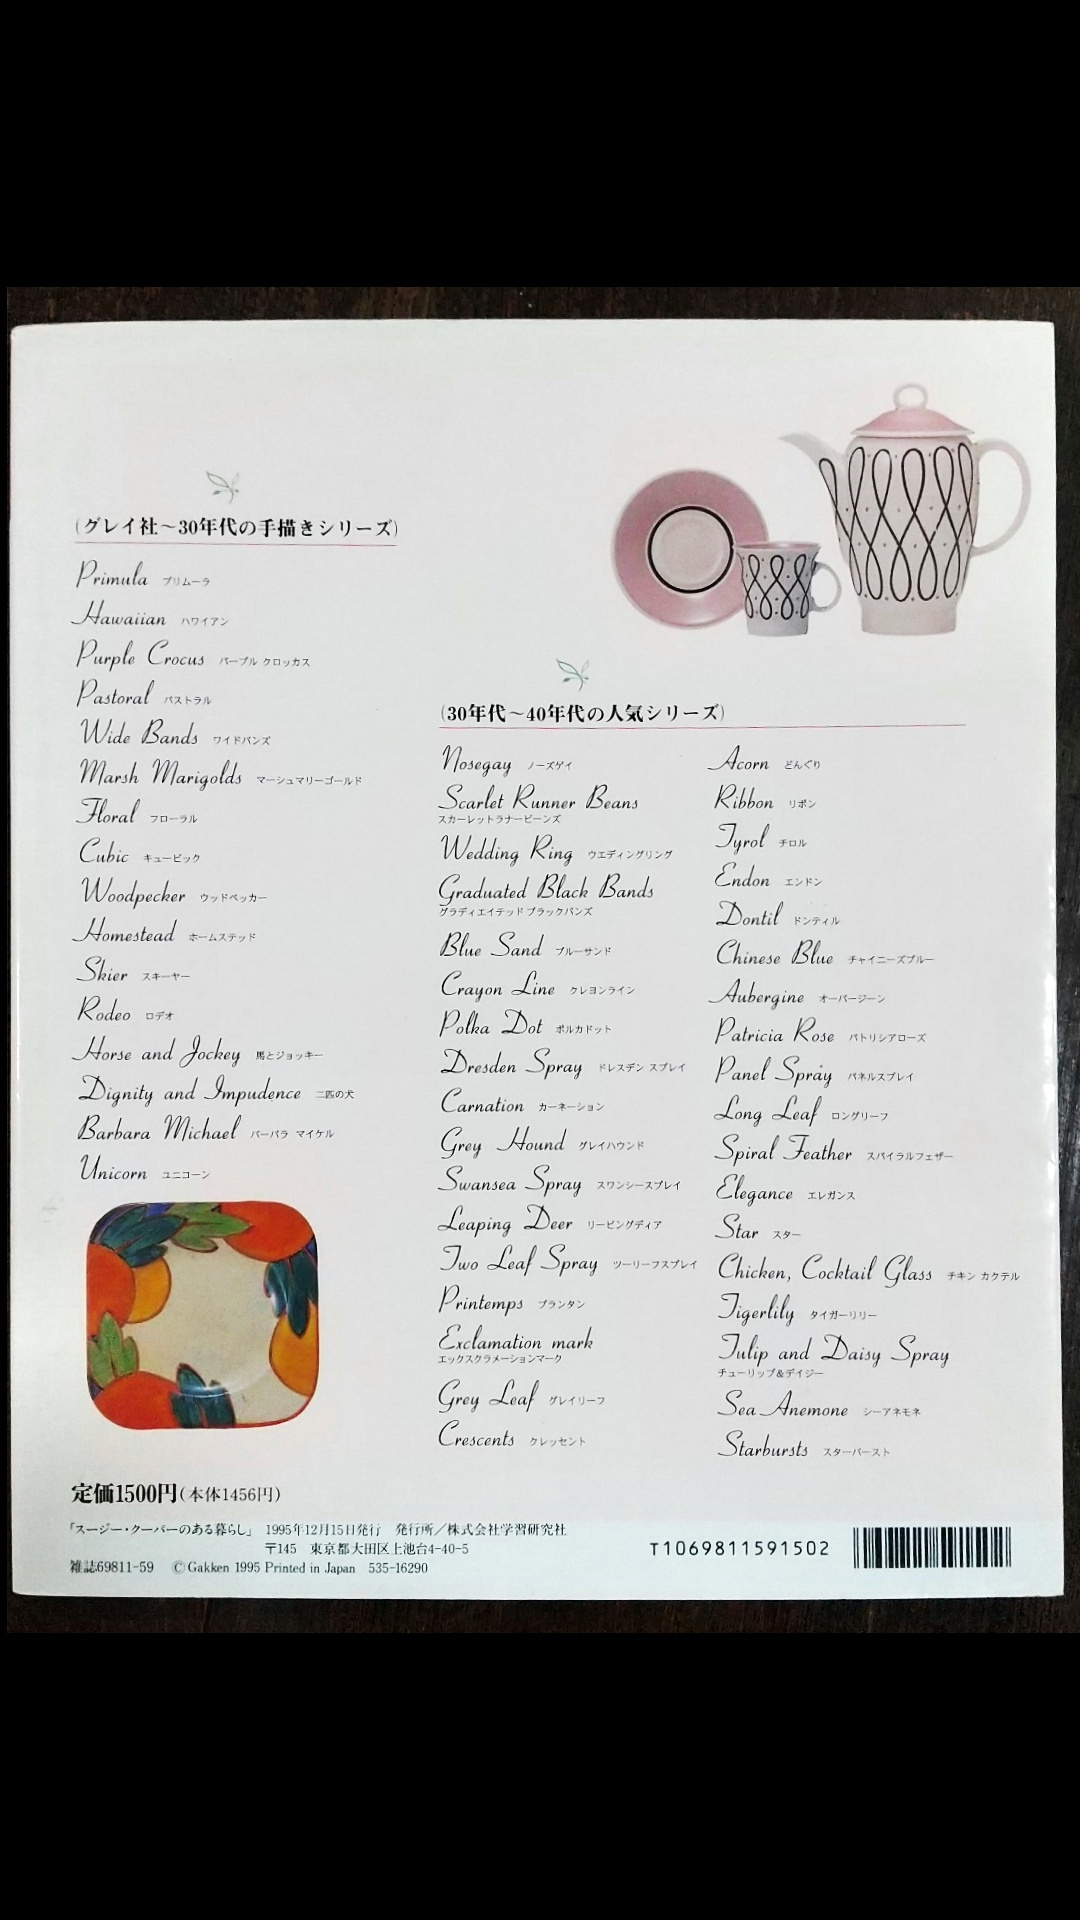 (グレイ社〜30年代の手描きシリーズ)
Primula プリムーラ
Hawaiian ハワイアン
Purple Crocus パープル クロッカス
Pastoral パストラル
Wide Bands ワイドバンズ
Marsh Marigolds マーシュマリーゴールド
Floral フローラル
Cubic キュービック
Woodpecker ウッドペッカー
Homestead ホームステッド
Skier スキーヤー
Rodeo ロデオ
Horse and Jockey 馬とジョッキー
Dignity and Impudence 二匹の犬
Barbara Michael バーバラ マイケル
Unicorn ユニコーン
(30年代〜40年代の人気シリーズ)
Nosegay ノーズゲイ
Scarlet Runner Beans
スカーレットラナービーンズ
Wedding Ring ウエディングリング
Graduated Black Bands
グラディエイテッド ブラックバンズ
Blue Sand ブルーサンド
Crayon Line クレヨンライン
Polka Dot ポルカドット
Dresden Spray ドレスデン スプレイ
Carnation カーネーション
Grey Hound グレイハウンド
Swansea Spray スワンシースプレイ
Leaping Deer リーピングディア
Two Leaf Spray ツーリーフスプレイ
Printemps プランタン
Exclamation mark
エックスクラメーションマーク
Grey Leaf グレイリーフ
Crescents クレッセント
Acorn どんぐり
Ribbon リボン
Tyrol チロル
Endon エンドン
Dontil ドンティル
Chinese Blue チャイニーズブルー
Aubergine オーバージーン
Patricia Rose パトリシアローズ
Panel Spray パネルスプレイ
Long Leaf ロングリーフ
Spiral Feather スパイラルフェザー
Elegance エレガンス
Star スター
Chicken, Cocktail Glass チキン カクテル
Tigerlily タイガーリリー
Tulip and Daisy Spray
チューリップ&デイジー
Sea Anemone シーアネモネ
Starbursts スターバースト
定価1500円(本体1456円)
「スージー・クーパーのある暮らし」 1995年12月15日発行 発行所/株式会社学習研究社
〒145 東京都大田区上池台4-40-5
雑誌69811-59 ©Gakken 1995 Printed in Japan 535-16290
T1069811591502